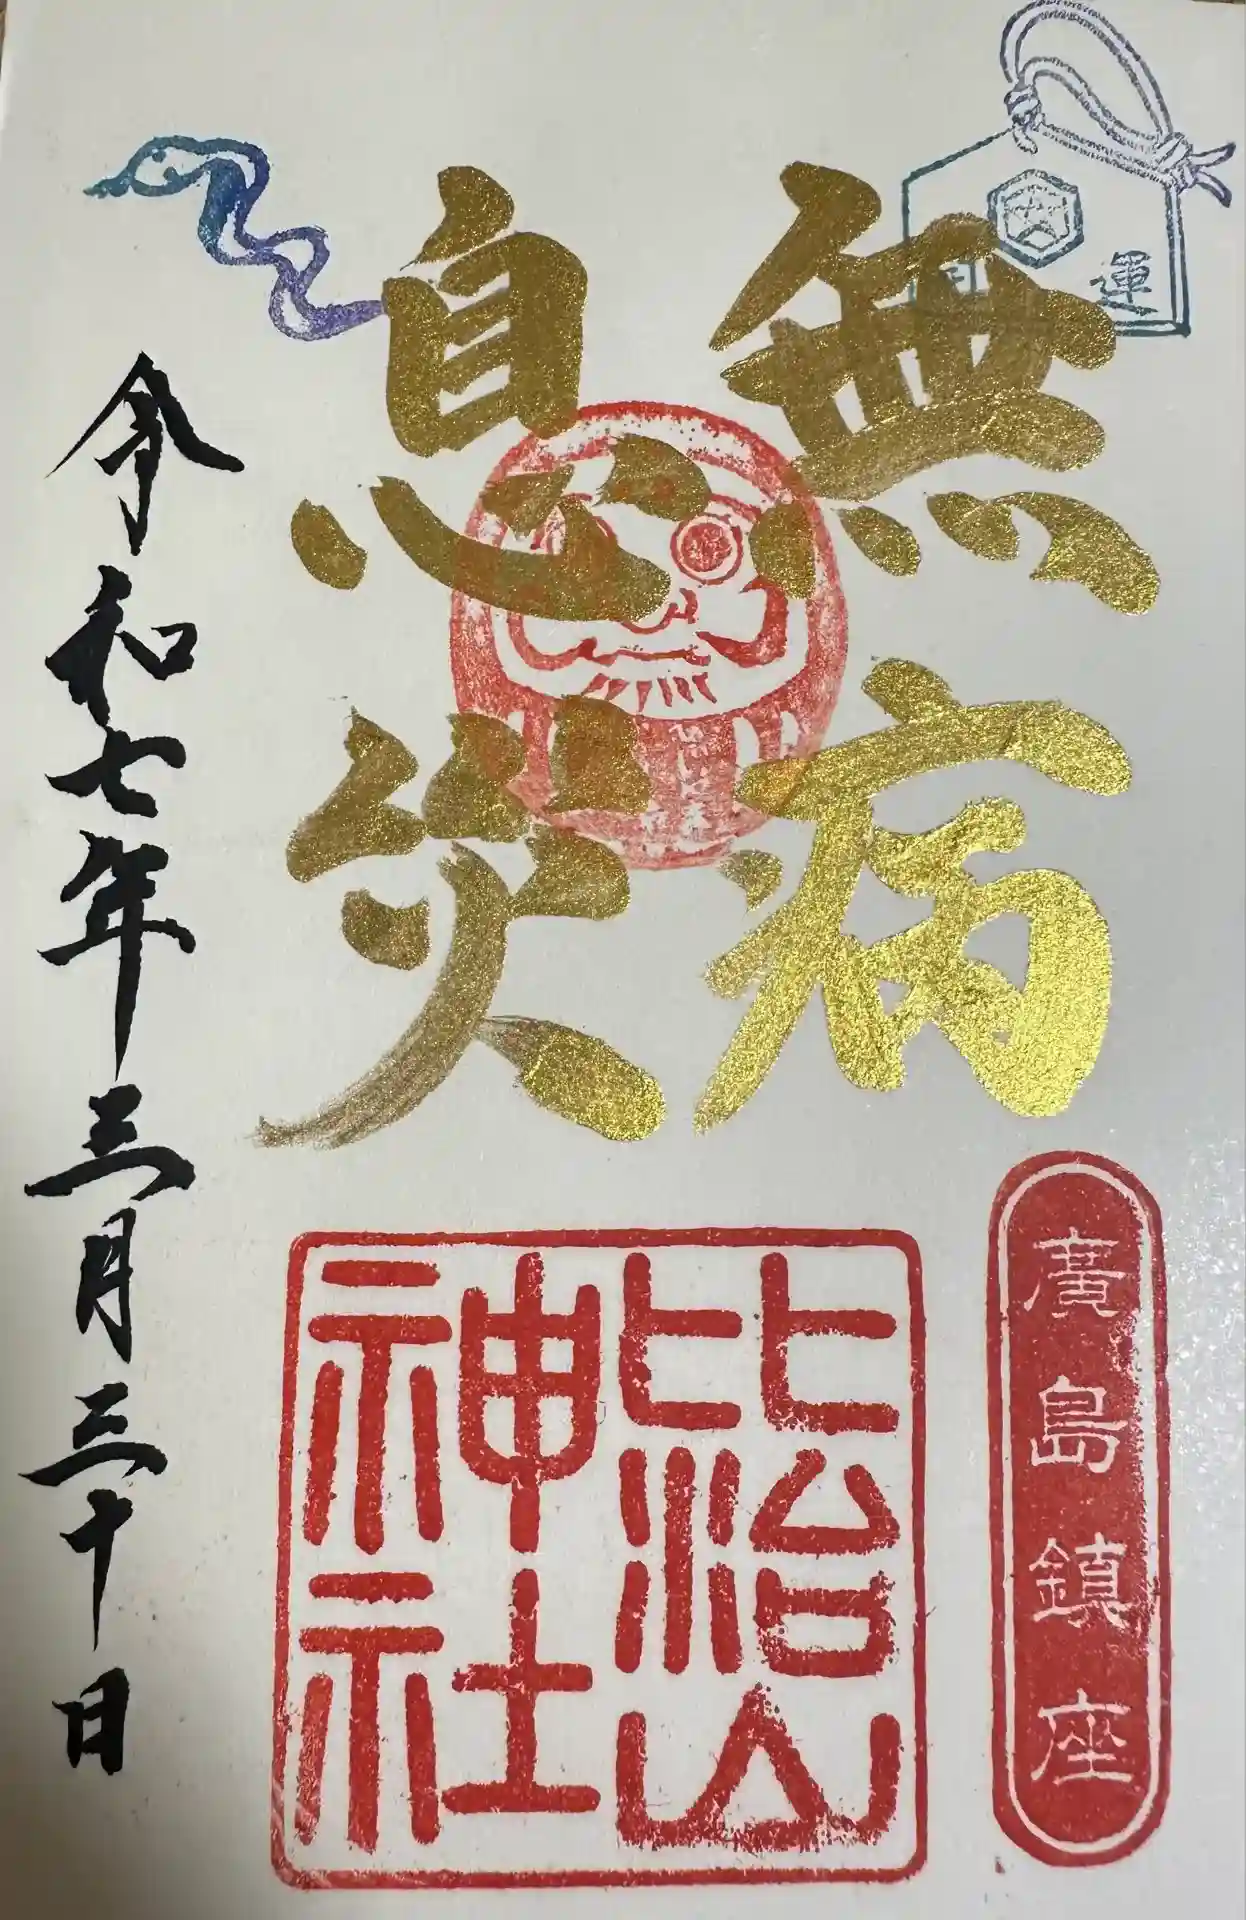 運
無病
息災
廣島鎮座
比治山
神社
令和七年三月三十日